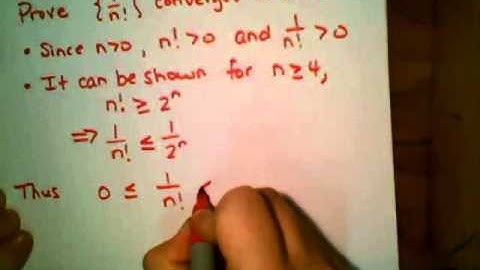 Prove {1/n!} converges
• Since n>0, n!>0 and 1/n! >0
• It can be shown for n≥4,
n! ≥ 2ⁿ
⇒ 1/n! ≤ 1/2ⁿ
Thus 0 ≤ 1/n!